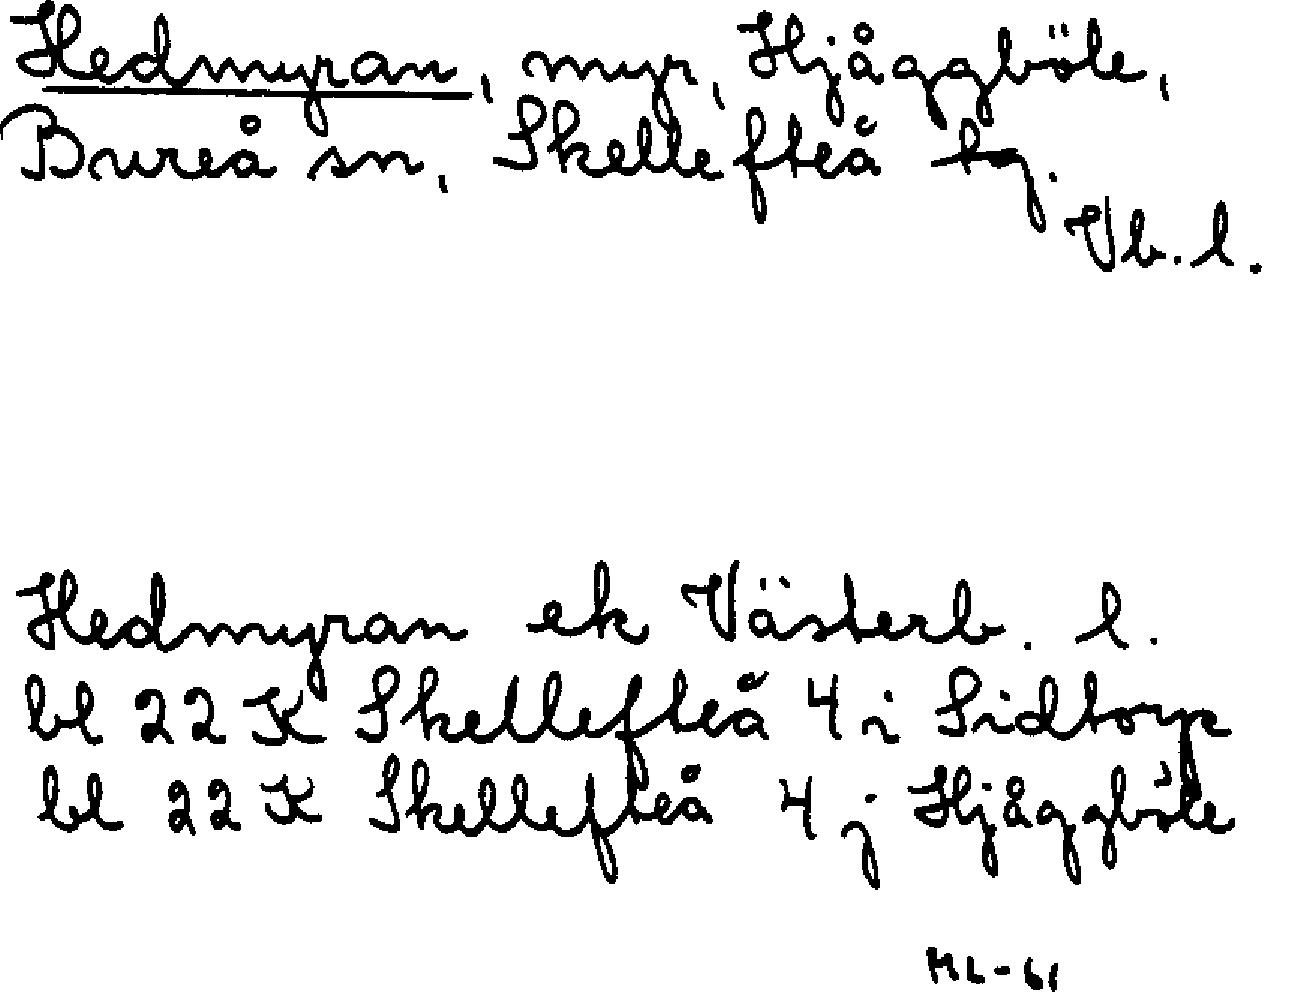 Hedmyran, myr, Hjåggböle,
Bureå sn, Skellefteå tg.
Vb. l.
Hedmyran ek Västerb. l.
bl 22 K Skellefteå 4 i Sidtorp
bl 22 K Skellefteå 4 j Hjåggböle
ML-61